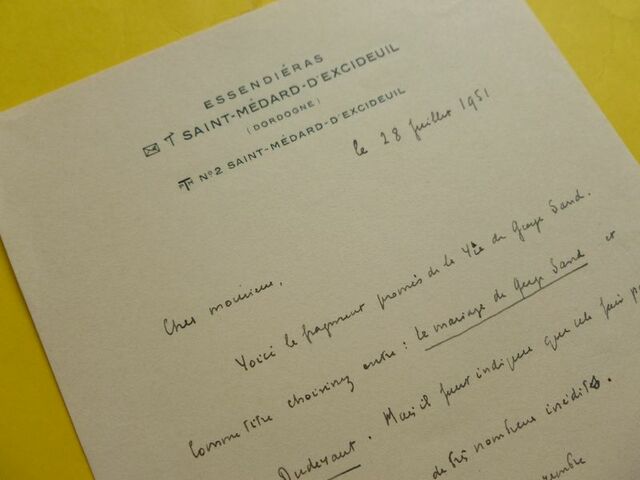 ESSENDIÉRAS
SAINT-MÉDARD-D'EXCIDEUIL
(DORDOGNE)
No 2 SAINT-MÉDARD-D'EXCIDEUIL
le 28 juillet 1951
Cher monsieur,
Voici le fragment promis de la Vie de George Sand.
Comme titre choisissez entre : Le mariage de George Sand et
Dudevant. Mais il faut indiquer que cela fait
de très nombreux inédits.